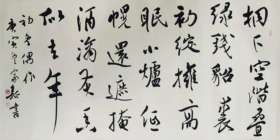 桐下空階疊
綠錢貂裘
初綻擁高
眠小爐低
幌還遮掩
酒滴灰香
似去年
初冬偶作
庚寅冬書